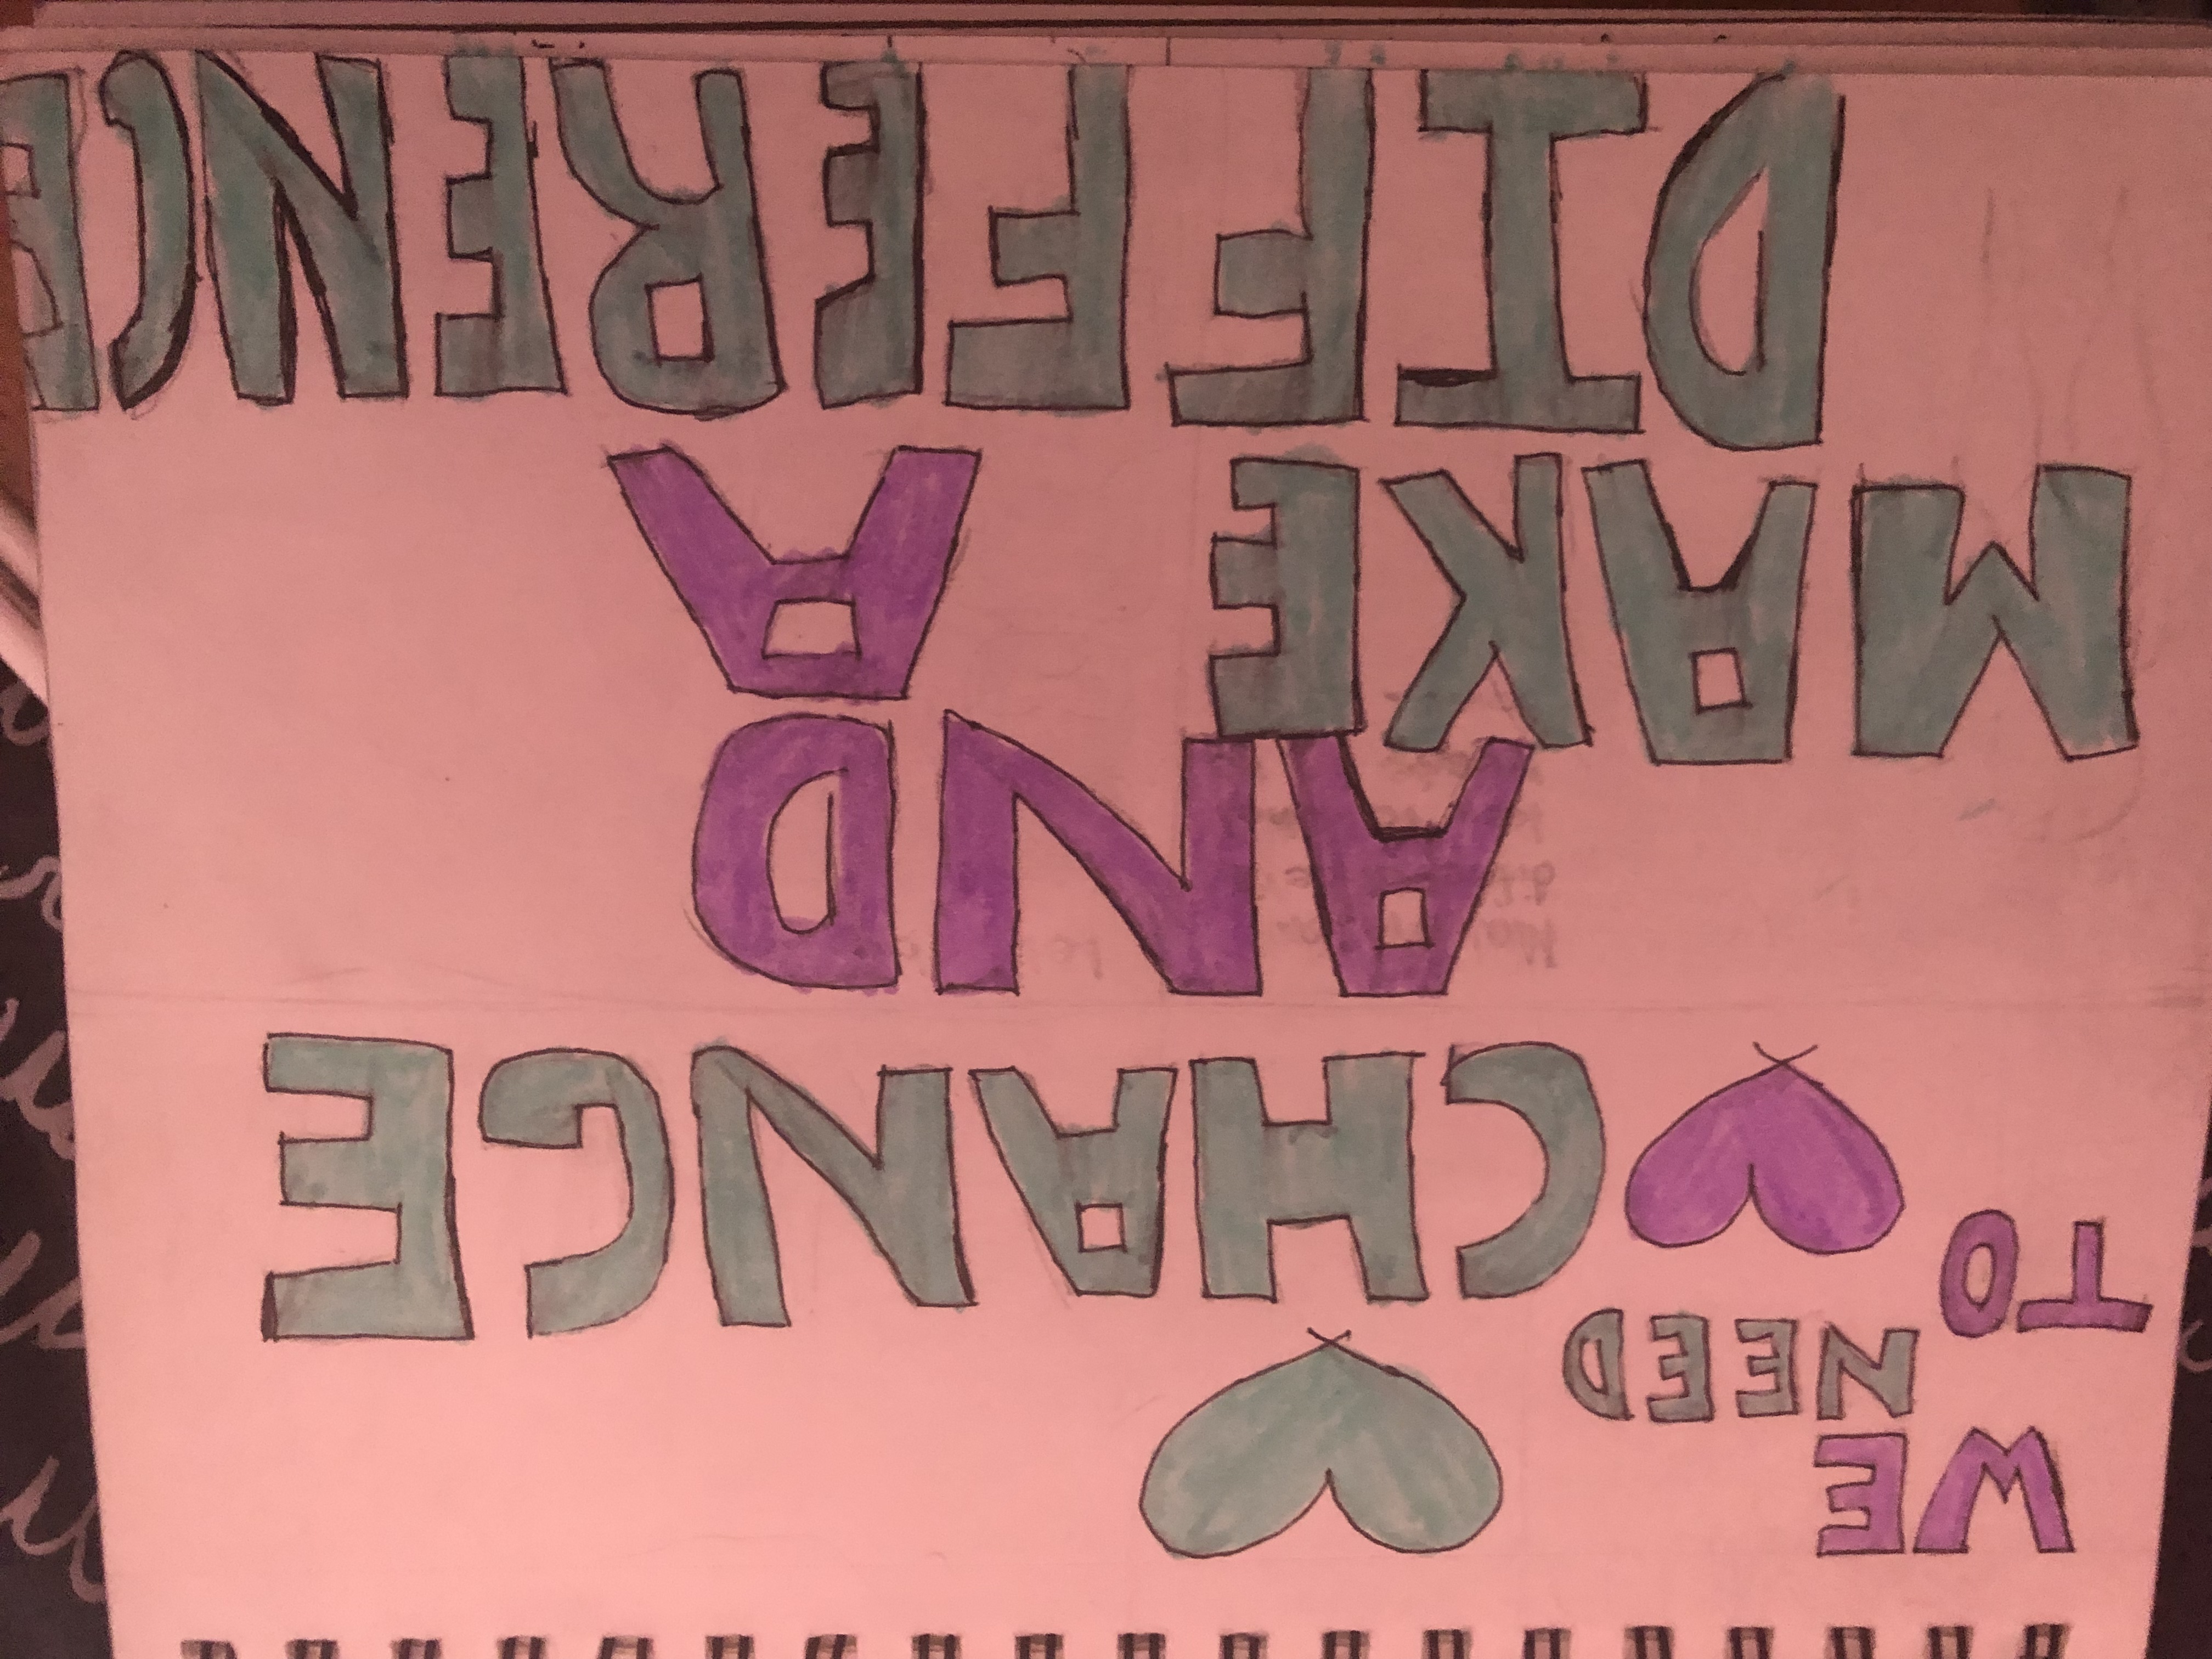 WE
NEED
TO
CHANGE
AND
MAKE A
DIFFERENCE